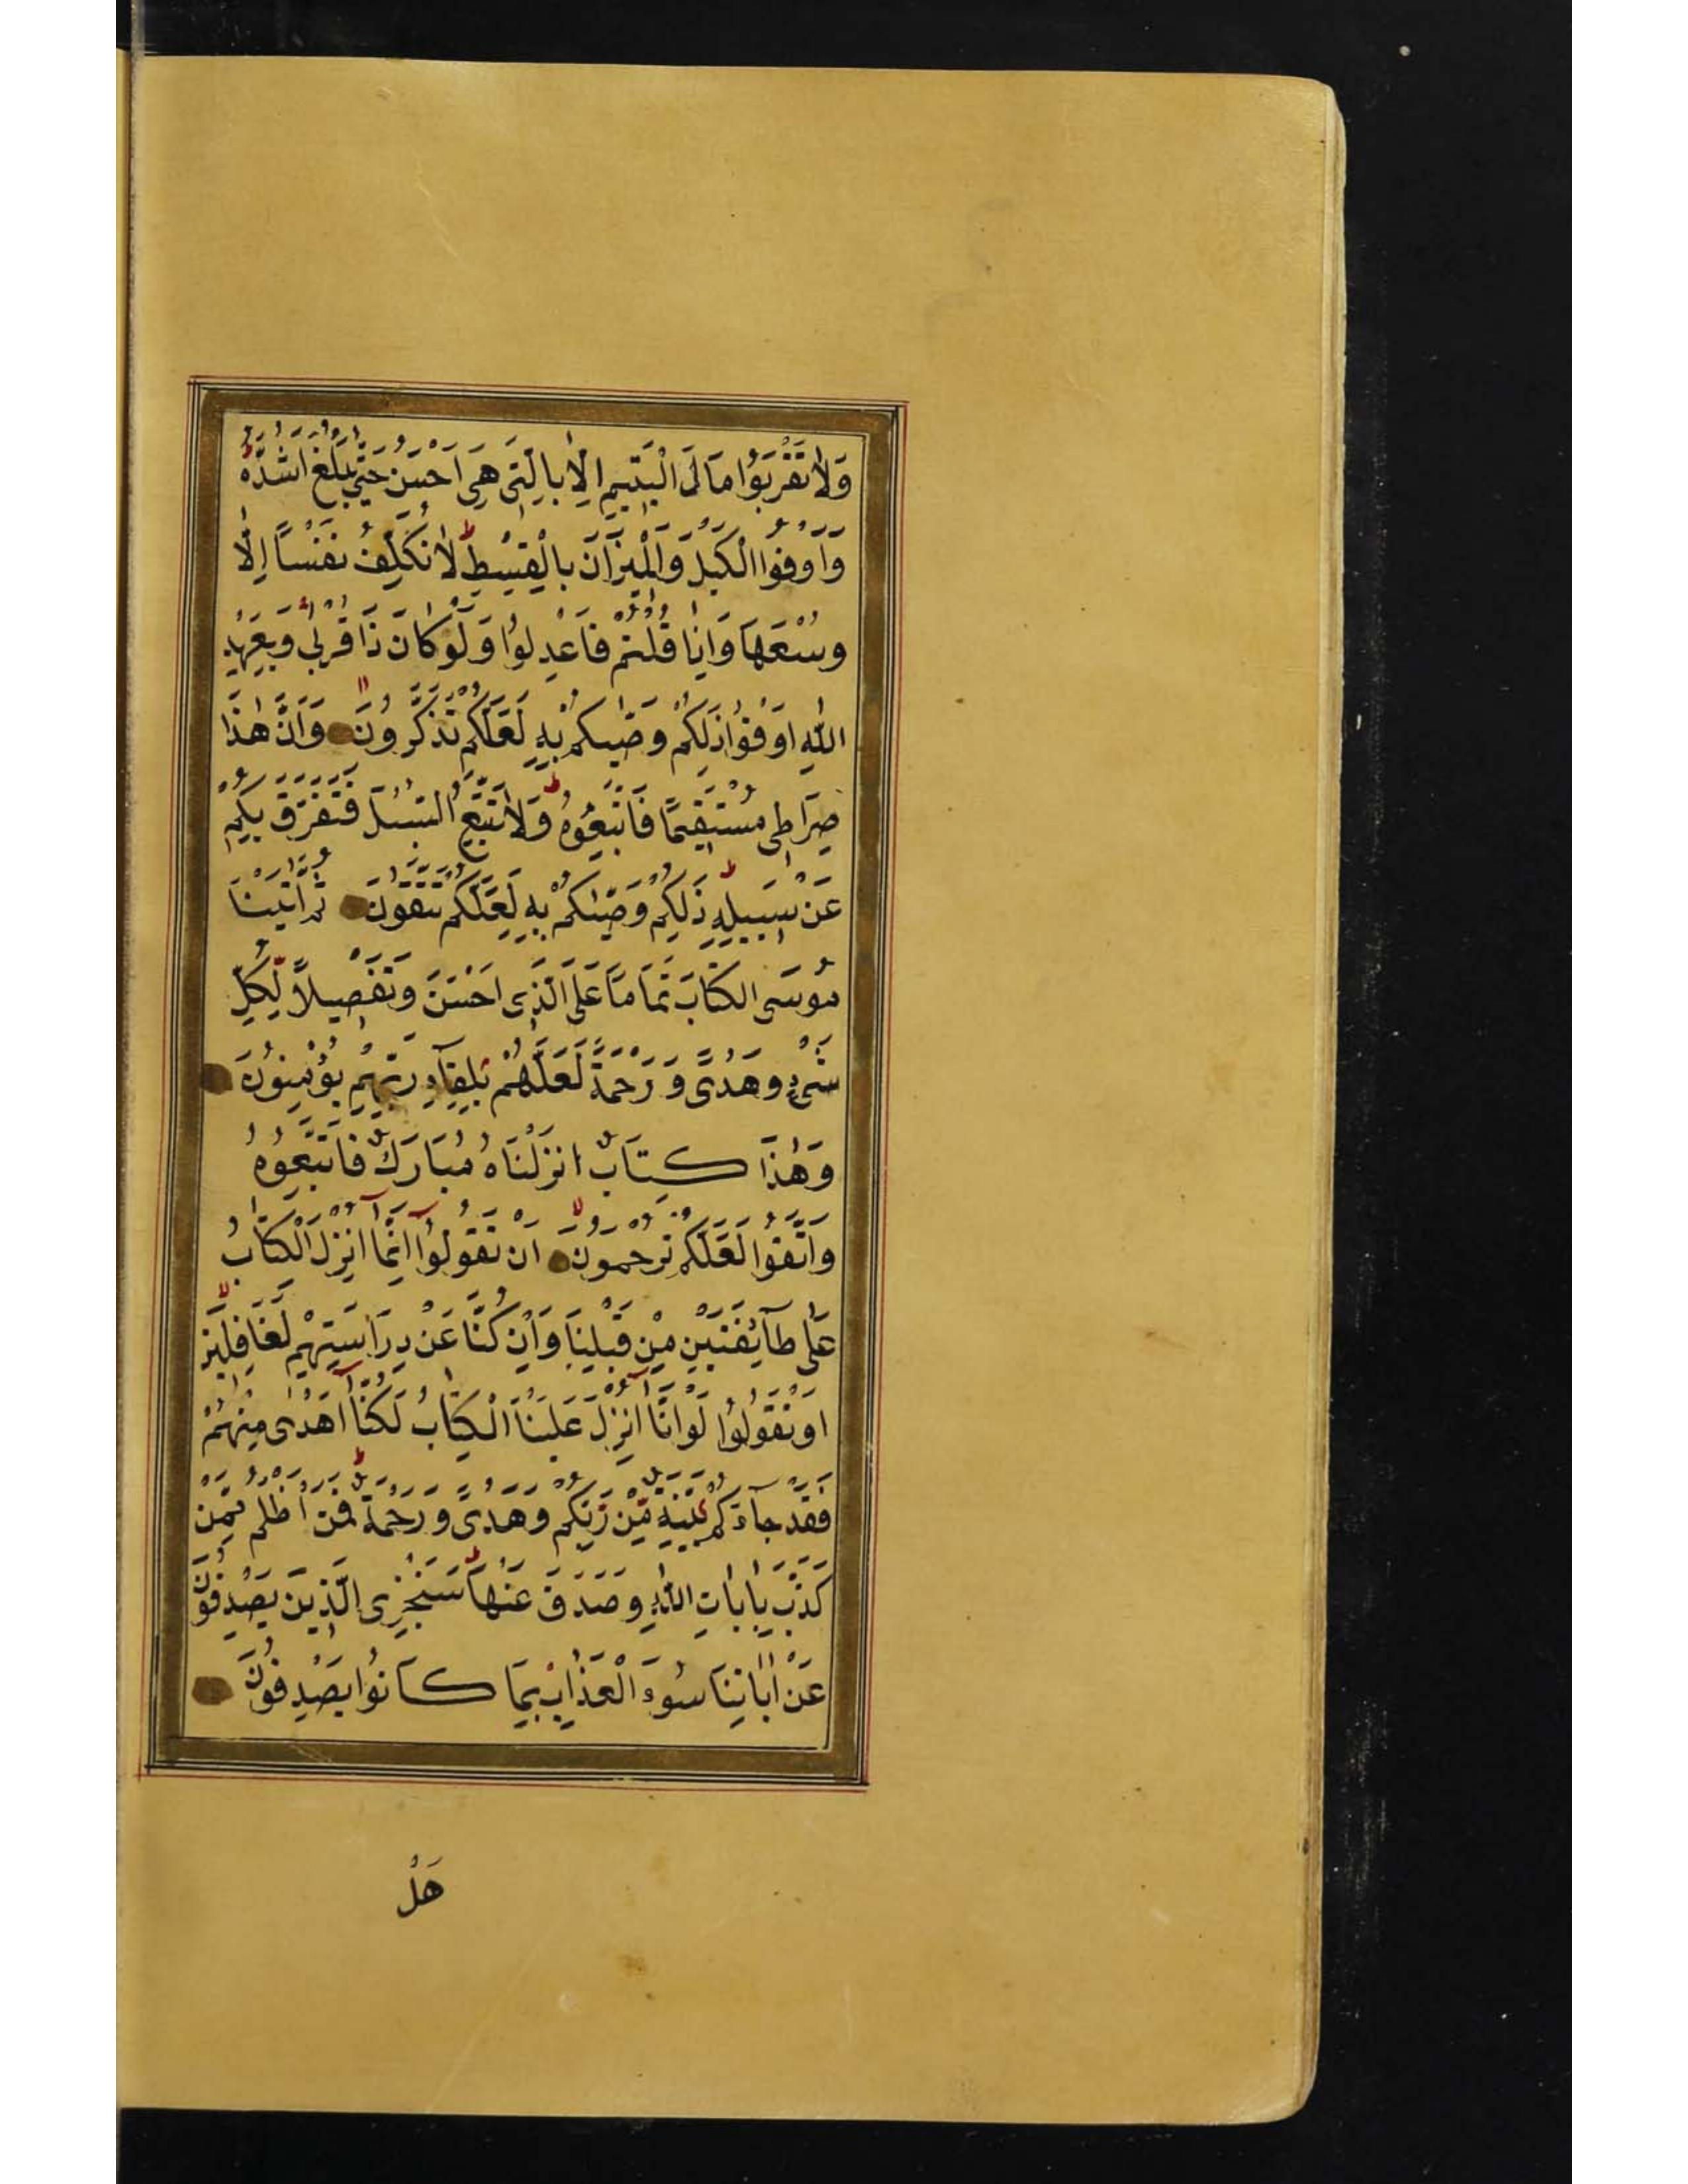 وَلَا تَقْرَبُوا مَالَ الْيَتِيمِ اِلَّا بِالَّتِي هِيَ اَحْسَنُ حَتّٰى يَبْلُغَ اَشُدَّهُ
وَاَوْفُوا الْكَيْلَ وَالْمِيزَانَ بِالْقِسْطِ لَا نُكَلِّفُ نَفْسًا اِلَّا
وُسْعَهَا وَاِذَا قُلْتُمْ فَاعْدِلُوا وَلَوْ كَانَ ذَا قُرْبٰى وَبِعَهْدِ
اللّٰهِ اَوْفُوا ذٰلِكُمْ وَصّٰيكُمْ بِهِ لَعَلَّكُمْ تَذَكَّرُونَ وَاَنَّ هٰذَا
صِرَاطِي مُسْتَقِيمًا فَاتَّبِعُوهُ وَلَا تَتَّبِعُ السُّبُلَ فَتَفَرَّقَ بِكُمْ
عَنْ سَبِيلِهِ ذٰلِكُمْ وَصّٰيكُمْ بِهِ لَعَلَّكُمْ تَتَّقُونَ ثُمَّ اٰتَيْنَا
مُوسَى الْكِتَابَ تَمَامًا عَلَى الَّذِي اَحْسَنَ وَتَفْصِيلًا لِكُلِّ
شَيْءٍ وَهُدًى وَرَحْمَةً لَعَلَّهُمْ بِلِقَاءِ رَبِّهِمْ يُؤْمِنُونَ
وَهٰذَا كِتَابٌ اَنْزَلْنَاهُ مُبَارَكٌ فَاتَّبِعُوهُ
وَاتَّقُوا لَعَلَّكُمْ تُرْحَمُونَ اَنْ تَقُولُوا اِنَّمَا اُنْزِلَ الْكِتَابُ
عَلٰى طَائِفَتَيْنِ مِنْ قَبْلِنَا وَاِنْ كُنَّا عَنْ دِرَاسَتِهِمْ لَغَافِلِينَ
اَوْ تَقُولُوا لَوْ اَنَّا اُنْزِلَ عَلَيْنَا الْكِتَابُ لَكُنَّا اَهْدٰى مِنْهُمْ
فَقَدْ جَاءَكُمْ بَيِّنَةٌ مِنْ رَبِّكُمْ وَهُدًى وَرَحْمَةٌ فَمَنْ اَظْلَمُ مِمَّنْ
كَذَّبَ بِاٰيَاتِ اللّٰهِ وَصَدَفَ عَنْهَا سَنَجْزِي الَّذِينَ يَصْدِفُونَ
عَنْ اٰيَاتِنَا سُوءَ الْعَذَابِ بِمَا كَانُوا يَصْدِفُونَ
هَلْ